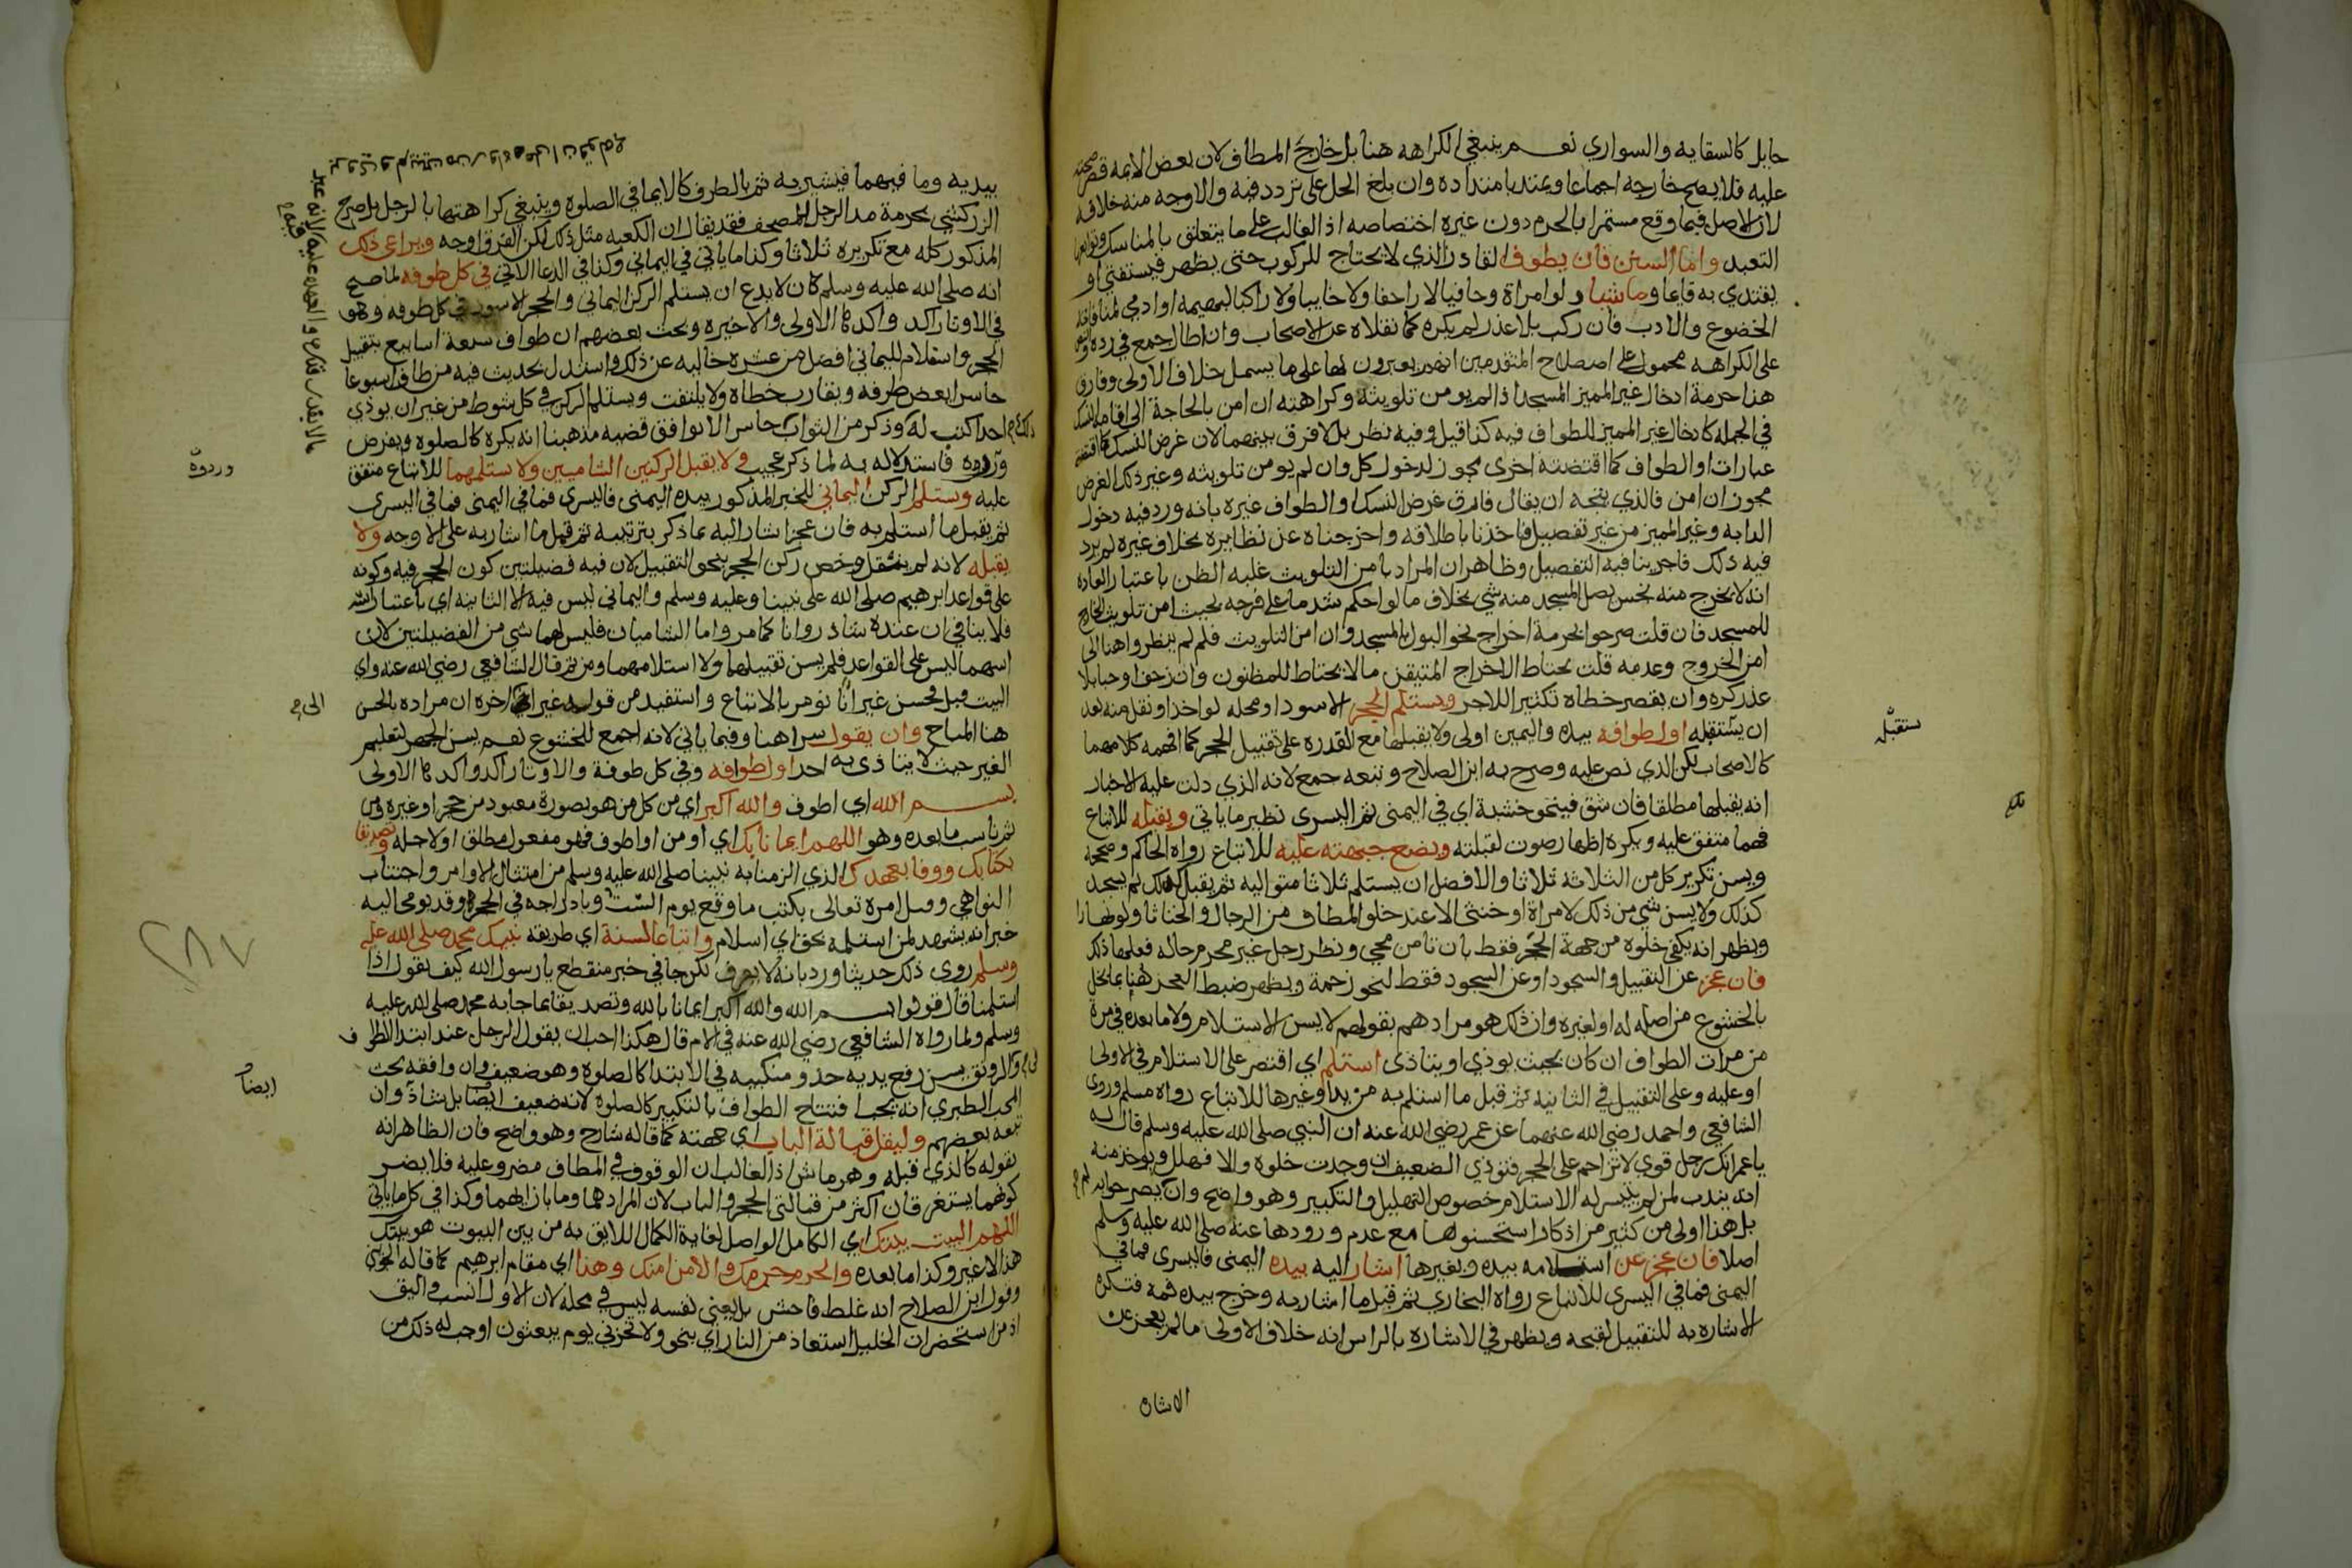 حايل كالسقايه والسواري نعم ينبغي الكراهه هنا بل خارج المطاف لان بعض الايمه قصر صحته
عليه فلا يصح خارجه اجماعا ويمتد بامتداده وان بلغ الحل على تردد فيه والاوجه منه خلافه
لان الاصل فيما وقع مستمرا بالحرم دون غيره اختصاصه به اذ الغالب على ما يتعلق بالمناسك وتوابعها
التعبد واما السنن فان يطوف القادر الذي لا يحتاج للركوب حتى يظهر فيستفتى او
يقتدي به قايما وماشيا ولو امراة وحافيا لا زاحفا ولا حابيا ولا راكبا لبهيمه او ادمي لمنافاته
الخضوع والادب فان ركب بلا عذر لم يكره كما نقلاه عن الاصحاب وان اطال جمع في رده والنص
على الكراهه محمول على اصطلاح المتقدمين انهم يعبرون بها على ما يشمل خلاف الاولى وفارق
هنا حرمة ادخال غير المميز المسجد اذا لم يومن تلويثه وكراهته ان امن بالحاجة الى اقامة النسك
في الجمله كادخال غير المميز للطواف فيه كذا قيل وفيه نظر بل لا فرق بينهما لان غرض النسك كما اقتضته
عبارات او الطواف كما اقتضته اخرى مجوز لدخول كل وان لم يومن تلويثه وغير ذلك الغرض
مجوز ان امن فالذي يتجه ان يقال فارق غرض النسك او الطواف غيره بانه ورد فيه دخول
الدابه وغير المميز من غير تفصيل فاخذنا باطلاقه واخرجناه عن نظايره بخلاف غيره لم يرد
فيه ذلك فاجرينا فيه التفصيل وظاهر ان المراد بامن التلويث غلبه الظن باعتبار العاده
انه لا يخرج منه نجس يصل المسجد منه شي بخلاف ما لو احكم شد ما على فرجه بحيث امن تلويث الخارج
للمسجد فان قلت صرحوا بحرمة اخراج نحو البول بالمسجد وان امن التلويث فلم لم ينظروا هنا الى
امن الخروج وعدمه قلت يحتاط للاخراج المتيقن ما لا يحتاط للمظنون وان زحف او حبا بلا
عذر كره وان يقصر خطاه تكثيرا للاجر ويستلم الحجر الاسود او محله لو اخذ او نقل منه بعد
ان يستقبله اول طوافه بيده واليمين اولى ولا يقبلها مع القدره على تقبيل الحجر كما افهمه كلامهما
كالاصحاب لكن الذي نص عليه وصرح به ابن الصلاح وتبعه جمع لانه الذي دلت عليه الاخبار
انه يقبلها مطلقا فان شق فبنحو خشبة اي في اليمنى ثم اليسرى نظير ما ياتي ويقبله للاتباع
فيهما متفق عليه ويكره اظهار صوت لقبلته ويضع جبهته عليه للاتباع رواه الحاكم وصححه
ويسن تكرير كل من الثلاثة ثلاثا والافضل ان يستلم ثلاثا متواليه ثم يقبل كذلك ثم يسجد
كذلك ولا يسن شي من ذلك لامراة او خنثى الا عند خلو المطاف من الرجال والخناثا ولو نهارا
ويظهر انه يكفي خلوه من جهة الحجر فقط بان تامن مجي ونظر رجل غير محرم حاله فعلها ذلك
فان عجز عن التقبيل والسجود او عن السجود فقط لنحو زحمة ويظهر ضبط العجز هنا بما يخل
بالخشوع من اصله له او لغيره وان ذلك هو مرادهم بقولهم لا يسن الاستلام ولا ما بعده في مرة
من مرات الطواف ان كان بحيث يوذي او يتاذى استلم اي اقتصر على الاستلام في الاولى
او عليه وعلى التقبيل في الثانيه ثم قبل ما استلم به من يد او غيرها للاتباع رواه مسلم وروى
الشافعي واحمد رضي الله عنهما عن عمر رضي الله عنه ان النبي صلى الله عليه وسلم قال له
يا عمر انك رجل قوي لا تزاحم على الحجر فتوذي الضعيف ان وجدت خلوه والا فهلل ويوخذ منه
انه يندب لمن لم يتيسر له الاستلام خصوص التهليل والتكبير وهو واضح وان لم يصرحوا به
بل هذا اولى من كثير من اذكار استحسنوها مع عدم ورودها عنه صلى الله عليه وسلم
اصلا فان عجز عن استلامه بيده وبغيرها اشار اليه بيده اليمنى فاليسرى فما في
اليمنى فما في اليسرى للاتباع رواه البخاري ثم قبل ما اشار به وخرج بيده فمه فتكره
الاشاره به للتقبيل لقبحه ويظهر في الاشاره بالراس انه خلاف الاولى ما لم يعجز عن
الاشاره
يستقبله
بيديه وما فيهما فيشير به ثم بالطرف كالايما في الصلوه وينبغي كراهتها بالرجل بل صرح
الزركشي بحرمة مد الرجل للمصحف فقد يقال ان الكعبه مثل ذلك لكن الفرق اوجه ويراعي ذلك
المذكور كله مع تكريره ثلاثا وكذا ما ياتي في اليماني وكذا في الدعا الاتي في كل طوفه لما صح
انه صلى الله عليه وسلم كان لا يدع ان يستلم الركن اليماني والحجر الاسود في كل طوفه وهو
في الاوتار اكد واكدها الاولى والاخيره وبحث بعضهم ان طواف سبعة اسابيع بتقبيل
الحجر واستلام لليماني افضل من عشره خاليه عن ذلك واستدل بحديث فيه من طاف اسبوعا
حاسرا بغض طرفه ويقارب خطاه ولا يلتفت ويستلم الركن في كل شوط من غير ان يوذي
احدا كتب له وذكر من الثواب حاسرا لا يوافق قضيه مذهبنا انه يكره كالصلوه وبفرض
وروده فاستدلاله به لما ذكر عجيب ولا يقبل الركنين الشاميين ولا يستلمهما للاتباع متفق
عليه ويستلم الركن اليماني للخبر المذكور بيده اليمنى فاليسرى فما في اليمنى فما في اليسرى
ثم يقبل ما استلم به فان عجز اشار اليه بما ذكر بترتيبه ثم قبل ما اشار به على الاوجه ولا
يقبله لانه لم ينقل وخص ركن الحجر بنحو التقبيل لان فيه فضيلتين كون الحجر فيه وكونه
على قواعد ابرهيم صلى الله على نبينا وعليه وسلم واليماني ليس فيه الا الثانيه اي باعتبار اسه
فلا ينافي ان عنده شاذروانا كما مر واما الشاميان فليس لهما شي من الفضيلتين لان
اسهما ليس على القواعد فلم يسن تقبيلهما ولا استلامهما ومن ثم قال الشافعي رضي الله عنه واي
البيت قبل فحسن غير انا نومر بالاتباع واستفيد من قوله غير انا الى اخره ان مراده بالحسن
هنا المباح وان يقول سرا هنا وفيما ياتي لانه اجمع للخشوع نعم يسن الجهر لتعليم
الغير حيث لا يتاذى به احد اول طوافه وفي كل طوفة والاوتار اكد واكدها الاولى
بسم الله اي اطوف والله اكبر اي من كل من هو بصورة معبود من حجر او غيره ومن
ثم ناسب ما بعده وهو اللهم ايمانا بك اي اومن او اطوف فهو مفعول مطلق او لاجله وتصديقا
بكتابك ووفا بعهدك الذي الزمنا به نبينا صلى الله عليه وسلم من امتثال الاوامر واجتناب
النواهي وقيل امره تعالى بكتب ما وقع يوم الست وبادراجه في الحجر وقد يومي اليه
خبر انه يشهد لمن استلمه بحق اي اسلام واتباعا لسنة اي طريقه نبيك محمد صلى الله عليه
وسلم روى ذلك حديثا ورد بانه لا يعرف لكن جا في خبر منقطع يا رسول الله كيف نقول اذا
استلمنا قال قولوا بسم الله والله اكبر ايمانا بالله وتصديقا بما جا به محمد صلى الله عليه
وسلم ولما رواه الشافعي رضي الله عنه في الام قال هكذا احب ان يقول الرجل عند ابتدا الطواف
وفي الرونق يسن رفع يديه حذو منكبيه في الابتدا كالصلوه وهو ضعيف وان وافقه بحث
المحب الطبري انه يجب افتتاح الطواف بالتكبير كالصلوه لانه ضعيف ايضا بل شاذ وان
تبعه بعضهم وليقل قبالة الباب اي جهته كما قاله شارح وهو واضح فان الظاهر انه
يقوله كالذي قبله وهو ماش اذ الغالب ان الوقوف في المطاف مضر وعليه فلا يضر
كونهما يستغرقان اكثر من قبالتي الحجر والباب لان المراد هما وما بازايهما وكذا في كل ما ياتي
اللهم البيت بيتك اي الكامل الواصل لغاية الكمال اللايق به من بين البيوت هو بيتك
هذا لا غير وكذا ما بعده والحرم حرمك والامن امنك وهذا اي مقام ابرهيم كما قاله الجويني
وقول ابن الصلاح انه غلط فاحش بل يعني نفسه ليس في محله لان الاول انسب واليق
اذ من استحضر ان الخليل استعاذ من النار اي بنحو ولا تخزني يوم يبعثون اوجب له ذلك من
وروده
الى
ايضا
٢٨٧